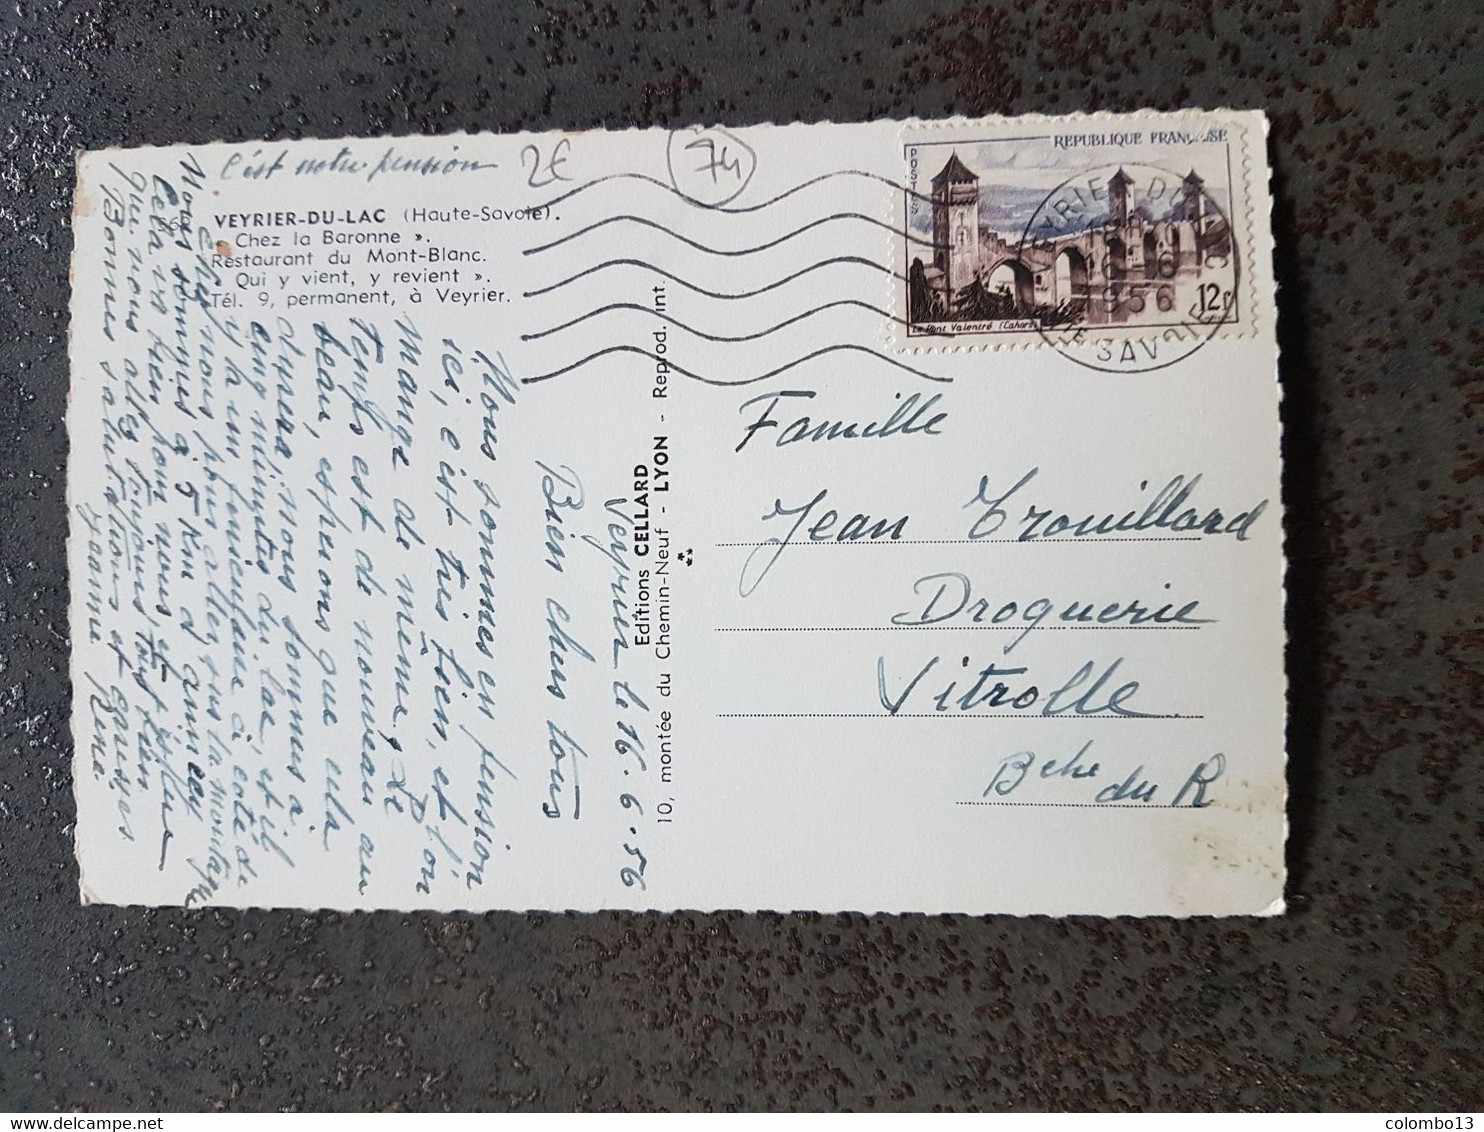 c'est notre pension
2€
74
VEYRIER-DU-LAC (Haute-Savoie).
« Chez la Baronne ».
Restaurant du Mont-Blanc.
Qui y vient, y revient ».
Tél. 9, permanent, à Veyrier.
REPUBLIQUE FRANÇAISE
POSTES
Le Pont Valentré (Cahors)
12F
16-6
1956
Editions CELLARD
10, montée du Chemin-Neuf - LYON - Reprod. int.
Veyrier le 16.6.56
Bien chers tous
Nous sommes en pension
ici, c'est très bien, et l'on
mange de même, Le
temps est de nouveau au
beau, espérons que cela
durera, nous sommes à
cinq minutes du lac, et il
y a un funiculaire à côté de
chez nous pour aller sur la montagne
Nous sommes à 5 km d'annecy
Cela va bien pour nous, et
que vous allez toujours tous bien
Bonnes salutations et grosses
Jeanne René.
Famille
Jean Trouillard
Droguerie
Vitrolle
Bche du R
colombo13